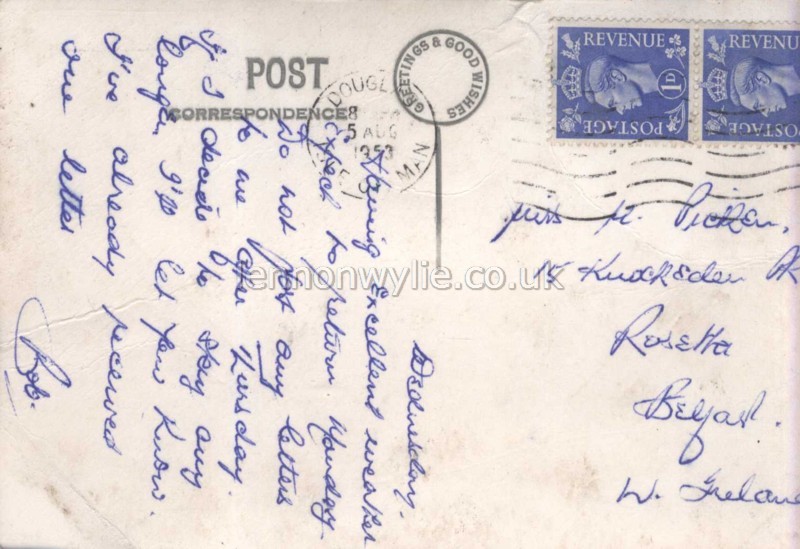 POST
CORRESPONDENCE
GREETINGS & GOOD WISHES
DOUGL
8
5 AUG
1953
MAN
REVENUE
1D
POSTAGE
REVENUE
POSTAGE
Wednesday.
Having excellent weather
Expect to return Monday
Do not post any letters
to me after Thursday.
If I decide to stay any
longer I'll let you know.
I've already received
one letter
Rob.
Miss M. Picken,
15 Knockeden Pk
Rosetta
Belfast.
N. Irelan
lennonwylie.co.uk